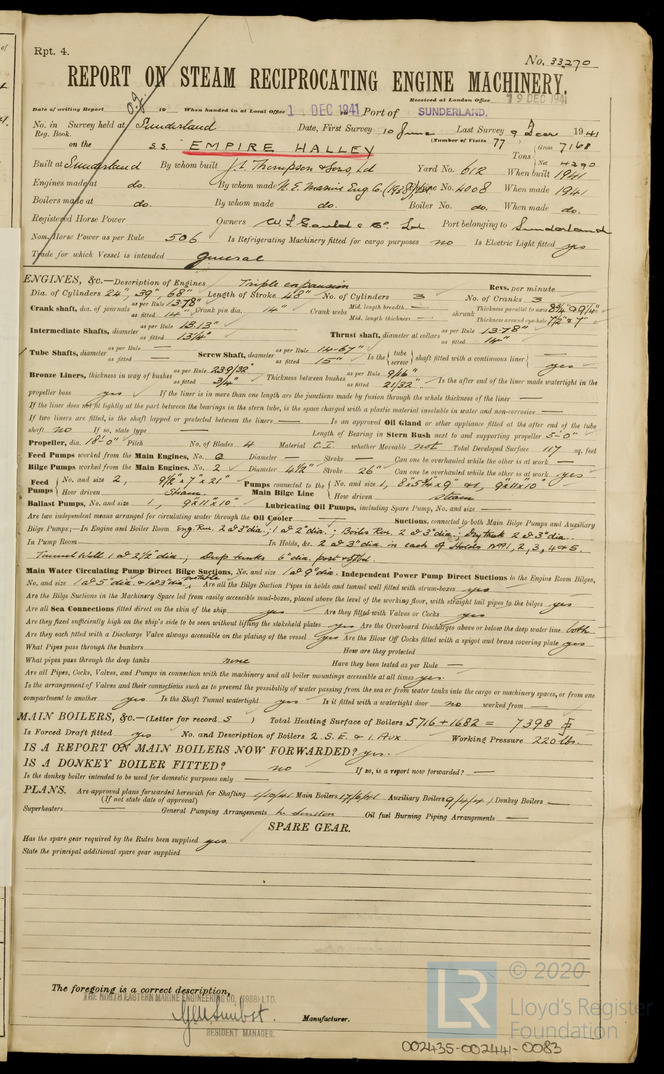 Rpt. 4.
No. 33270
REPORT ON STEAM RECIPROCATING ENGINE MACHINERY.
Received at London Office 19 DEC 1941
Date of writing Report 19 When handed in at Local Office 1 DEC 1941 Port of SUNDERLAND.
No. in Reg. Book. Survey held at Sunderland Date, First Survey 10 June Last Survey 9 Dec 1941
(Number of Visits 77)
on the S.S. EMPIRE HALLEY Tons Gross 7168 Net 4290
Built at Sunderland By whom built J. L. Thompson & Sons, Ld Yard No. 612 When built 1941
Engines made at do. By whom made N. E. Marine Eng. Co. (1938) Ltd Engine No. 4008 When made 1941
Boilers made at do. By whom made do. Boiler No. do. When made do.
Registered Horse Power Owners Port belonging to Sunderland
Nom. Horse Power as per Rule 506 Is Refrigerating Machinery fitted for cargo purposes no Is Electric Light fitted yes
Trade for which Vessel is intended general
ENGINES, &c.—Description of Engines Triple expansion Revs. per minute
Dia. of Cylinders 24", 39", 68" Length of Stroke 48" No. of Cylinders 3 No. of Cranks 3
Crank shaft, dia. of journals as per Rule 13.78" as fitted 14" Crank pin dia. 14" Crank webs Mid. length breadth — Mid. length thickness — shrunk Thickness parallel to axis 8 3/4" & 9 1/4" Thickness around eye-hole
Intermediate Shafts, diameter as per Rule 13.13" as fitted 13 1/4" Thrust shaft, diameter at collars as per Rule 13.78" as fitted 14"
Tube Shafts, diameter as per Rule — as fitted — Screw Shaft, diameter as per Rule 14.67" as fitted 15" Is the { tube screw } shaft fitted with a continuous liner { — yes
Bronze Liners, thickness in way of bushes as per Rule 23.9/32" as fitted 3/4" Thickness between bushes as per Rule 9/16" as fitted 21/32" Is the after end of the liner made watertight in the
propeller boss yes If the liner is in more than one length are the junctions made by fusion through the whole thickness of the liner —
If the liner does not fit tightly at the part between the bearings in the stern tube, is the space charged with a plastic material insoluble in water and non-corrosive —
If two liners are fitted, is the shaft lapped or protected between the liners — Is an approved Oil Gland or other appliance fitted at the after end of the tube
shaft no If so, state type — Length of Bearing in Stern Bush next to and supporting propeller 5'-0"
Propeller, dia. 18'-0" Pitch No. of Blades 4 Material C.I. whether Moveable not Total Developed Surface 117 sq. feet
Feed Pumps worked from the Main Engines, No. 0 Diameter — Stroke — Can one be overhauled while the other is at work —
Bilge Pumps worked from the Main Engines, No. 2 Diameter 4 1/2" Stroke 26" Can one be overhauled while the other is at work yes
Feed Pumps { No. and size 2, 9 1/2" x 7" x 21" How driven Steam Pumps connected to the Main Bilge Line { No. and size How driven steam
Ballast Pumps, No. and size 1, 9"x11"x10" Lubricating Oil Pumps, including Spare Pump, No. and size —
Are two independent means arranged for circulating water through the Oil Cooler — Suctions, connected to both Main Bilge Pumps and Auxiliary
Bilge Pumps;—In Engine and Boiler Room Eng. Rm. 2 @ 3" dia.; 1 @ 2" dia.; Boiler Rm. 2 @ 3" dia.; Dry tank 2 @ 3" dia.
In Pump Room — In Holds, &c. 2 @ 3" dia. in each of Holds Nos 1, 2, 3, 4 & 5.
Tunnel Well 1 @ 2 1/2" dia.; Deep tanks 6" dia. port & stbd.
Main Water Circulating Pump Direct Bilge Suctions, No. and size 1 @ 9" dia. Independent Power Pump Direct Suctions to the Engine Room Bilges,
No. and size 1 @ 5" dia. Are all the Bilge Suction Pipes in holds and tunnel well fitted with strum-boxes yes
Are the Bilge Suctions in the Machinery Space led from easily accessible mud-boxes, placed above the level of the working floor, with straight tail pipes to the bilges yes
Are all Sea Connections fitted direct on the skin of the ship yes Are they fitted with Valves or Cocks yes
Are they fixed sufficiently high on the ship's side to be seen without lifting the stokehold plates yes Are the Overboard Discharges above or below the deep water line both
Are they each fitted with a Discharge Valve always accessible on the plating of the vessel yes Are the Blow Off Cocks fitted with a spigot and brass covering plate yes
What Pipes pass through the bunkers — How are they protected —
What pipes pass through the deep tanks none Have they been tested as per Rule —
Are all Pipes, Cocks, Valves, and Pumps in connection with the machinery and all boiler mountings accessible at all times yes.
Is the arrangement of Valves and their connections such as to prevent the possibility of water passing from the sea or from water tanks into the cargo or machinery spaces, or from one
compartment to another yes Is the Shaft Tunnel watertight yes Is it fitted with a watertight door no worked from —
MAIN BOILERS, &c.—(Letter for record S) Total Heating Surface of Boilers 5716 + 1682 = 7398
Is Forced Draft fitted yes No. and Description of Boilers 2 S.E. & 1 Aux Working Pressure 220 lbs.
IS A REPORT ON MAIN BOILERS NOW FORWARDED? yes.
IS A DONKEY BOILER FITTED? no If so, is a report now forwarded? —
Is the donkey boiler intended to be used for domestic purposes only —
PLANS. Are approved plans forwarded herewith for Shafting Main Boilers 17/6/41 Auxiliary Boilers 9/4/41 Donkey Boilers —
(If not state date of approval)
Superheaters — General Pumping Arrangements Oil fuel Burning Piping Arrangements —
SPARE GEAR.
Has the spare gear required by the Rules been supplied yes
State the principal additional spare gear supplied
The foregoing is a correct description,
THE NORTH EASTERN MARINE ENGINEERING CO. (1938) LTD.
RESIDENT MANAGER. Manufacturer.
LR © 2020 Lloyd's Register Foundation
002435-002441-0083